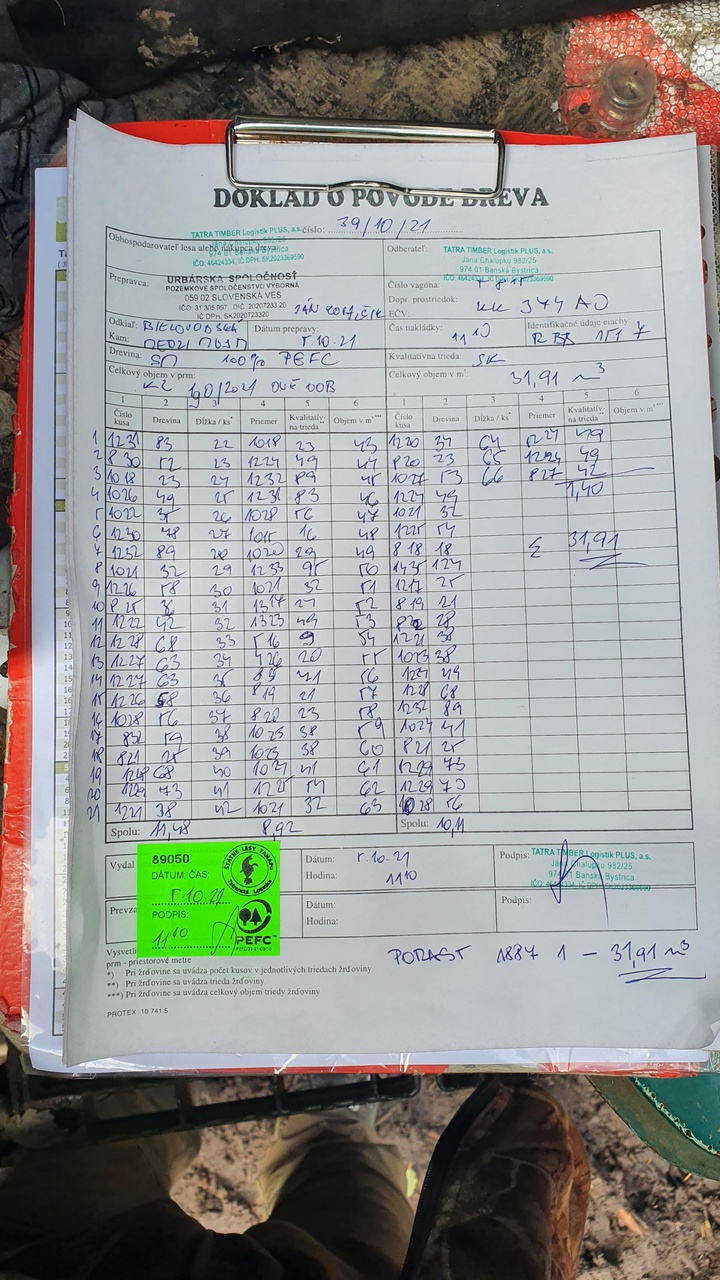 DOKLAD O PÔVODE DREVA
číslo: 39/10/21
Obhospodarovateľ lesa alebo nákupca dreva:
TATRA TIMBER Logistik PLUS, a.s.
Jána Chalupky 982/25
974 01 Banská Bystrica
IČO: 46424334, IČ DPH: SK2023369590
Odberateľ:
TATRA TIMBER Logistik PLUS, a.s.
Jána Chalupky 982/25
974 01 Banská Bystrica
IČO: 46424334, IČ DPH: SK2023369590
Prepravca:
URBÁRSKA SPOLOČNOSŤ
POZEMKOVÉ SPOLOČENSTVO VÝBORNÁ
059 02 SLOVENSKÁ VES
IČO: 31 305 997, DIČ: 2020723320
IČ DPH: SK2020723320
JÁN
Číslo vagóna:
Dopr. prostriedok:
EČV: KK 374 AO
Odkiaľ: BIELOVODSKÁ
Kam:
Dátum prepravy:
5.10.21
Čas nakládky:
11 10
Identifikačné údaje ciachy
Drevina: SM 100% PEFC
Kvalitatívna trieda: SK
Celkový objem v prm:
KZ 190/2021
Celkový objem v m³: 31,91 m³
1 2 3 4 5 6 1 2 3 4 5 6
Číslo kusa Drevina Dĺžka / ks* Priemer Kvalitatív-na trieda** Objem v m³*** Číslo kusa Drevina Dĺžka / ks* Priemer Kvalitatív-na trieda** Objem v m³***
1 1231 83 22 1018 23 43 1220 37 64 1227 49
2 830 52 23 1224 49 44 820 23 65 1224 49
3 1018 23 24 1232 89 45 1027 53 66 827 42
1,40
4 1026 49 25 1231 83 46 1224 49
5 1022 35 26 1028 56 47 1021 32
6 1230 78 27 1015 16 48 1225 54
7 1232 89 28 1020 29 49 818 18 Σ 31,91
8 1021 32 29 1233 95 50 1435 124
9 1226 58 30 1021 32 51 1217 25
10 825 36 31 1317 27 52 819 21
11 1222 42 32 1323 49 53 28
12 1228 68 33 516 9 54 1221 38
13 1227 63 34 426 20 55 1023 38
14 1227 63 35 41 56 1224 49
15 1226 58 36 819 21 57 1228 68
16 1028 56 37 820 23 58 1232 89
17 832 59 38 1023 38 59 1024 41
18 821 25 39 1023 38 60 821 25
19 1228 68 40 1024 41 61 1229 73
20 1229 73 41 1225 54 62 1229 73
21 1221 38 42 1021 32 63 1028 56
Spolu: 11,48 8,92 Spolu: 10,11
Vydal
Dátum: 5.10.21
Hodina: 11 10
Podpis:
TATRA TIMBER Logistik PLUS, a.s.
Jána Chalupky 982/25
974 01 Banská Bystrica
IČO: 46424334, IČ DPH: SK2023369590
89050
DÁTUM: ČAS:
5.10.21
PODPIS:
11 10
ŠTÁTNE LESY TANAPU
Tatranská Lomnica
PEFC
Prevza
Dátum:
Hodina:
Podpis:
Vysvetli
prm - priestorové metre
*) Pri žrďovine sa uvádza počet kusov v jednotlivých triedach žrďoviny
**) Pri žrďovine sa uvádza trieda žrďoviny
***) Pri žrďovine sa uvádza celkový objem triedy žrďoviny
PORAST 1887 1 – 31,91 m³
PROTEX 10 741 5